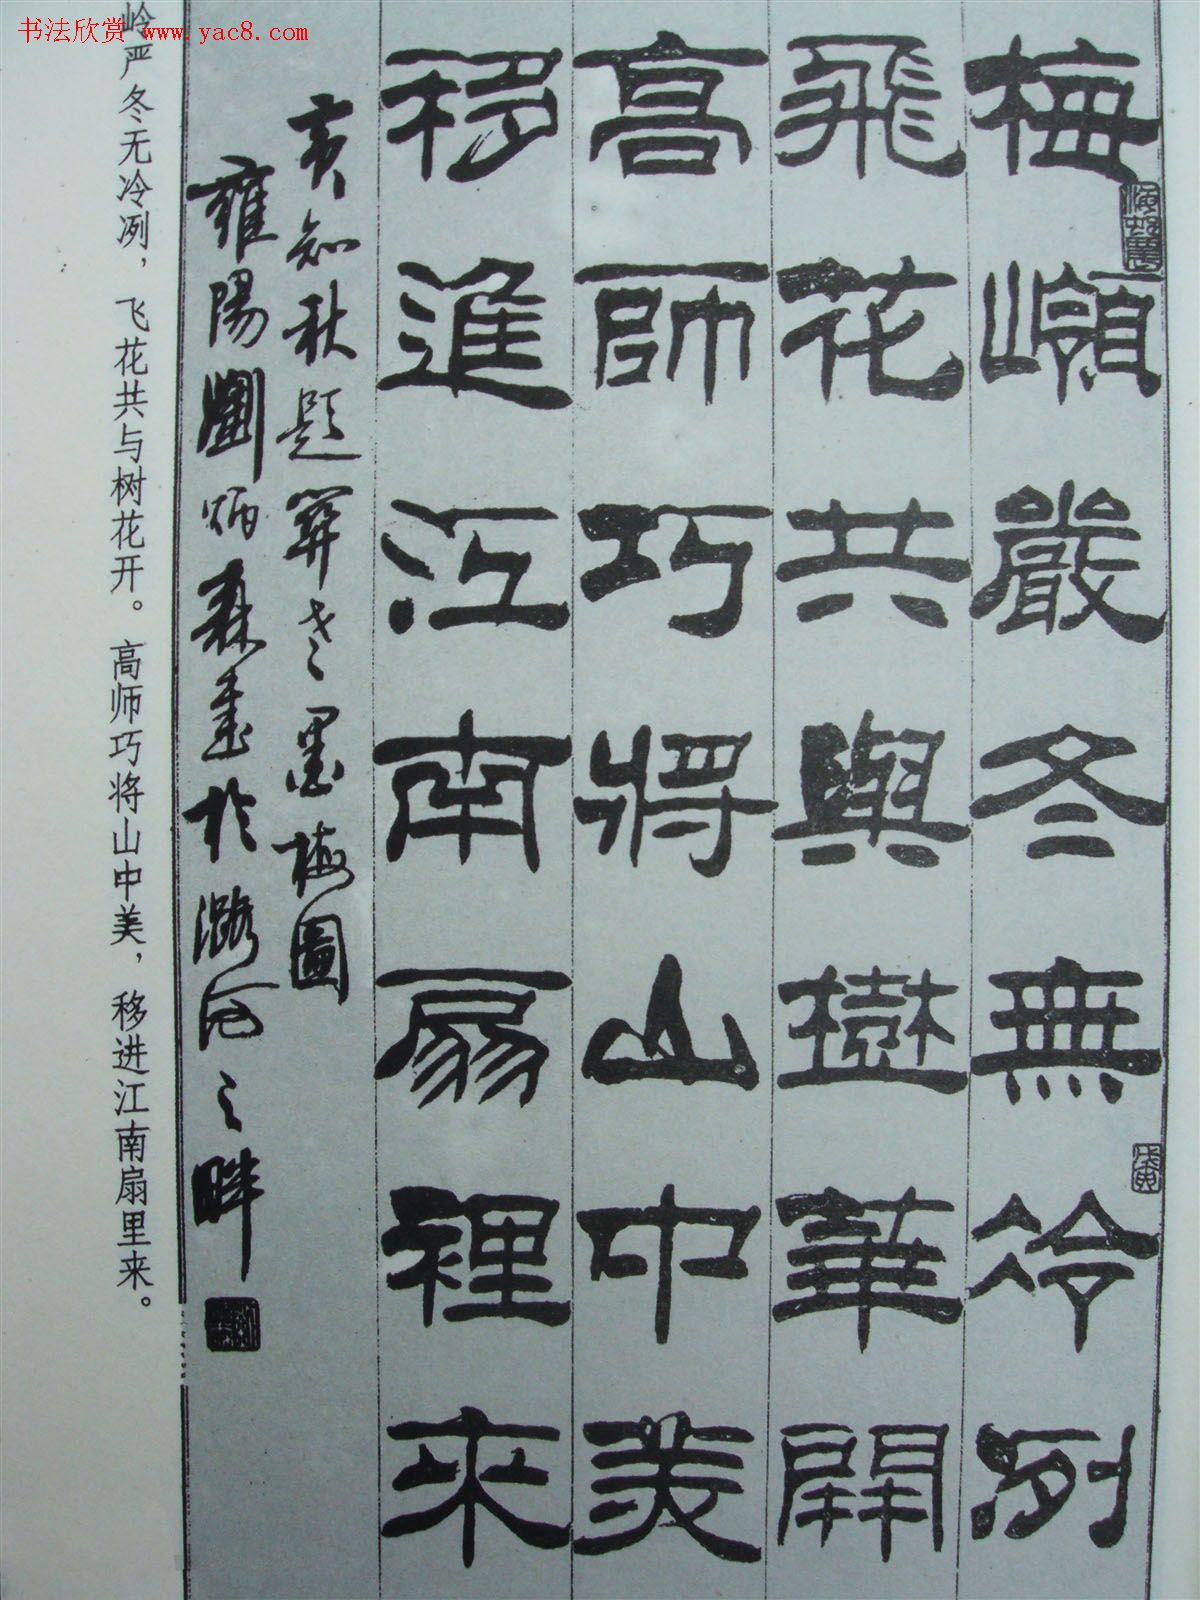 书法欣赏 www.yac8.com
梅嶺嚴冬無冷冽
飛花共與樹華開
高師巧將山中美
移進江南扇裡來
亥初秋題
墨梅圖
雍陽劉炳森書於潞河之畔
岭严冬无冷冽，飞花共与树花开。高师巧将山中美，移进江南扇里来。